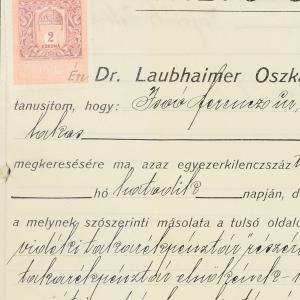 2
KORONA
Én Dr. Laubhaimer Oszká
tanusitom, hogy: Ivó Ferencz úr,
lakos
megkeresésére ma, azaz egyezerkilenczszáz
hó hatodik napján, d
a melynek szószerinti másolata a tulsó oldalo
vidéki takarékpénztár részvén
takarékpénztár elnökének